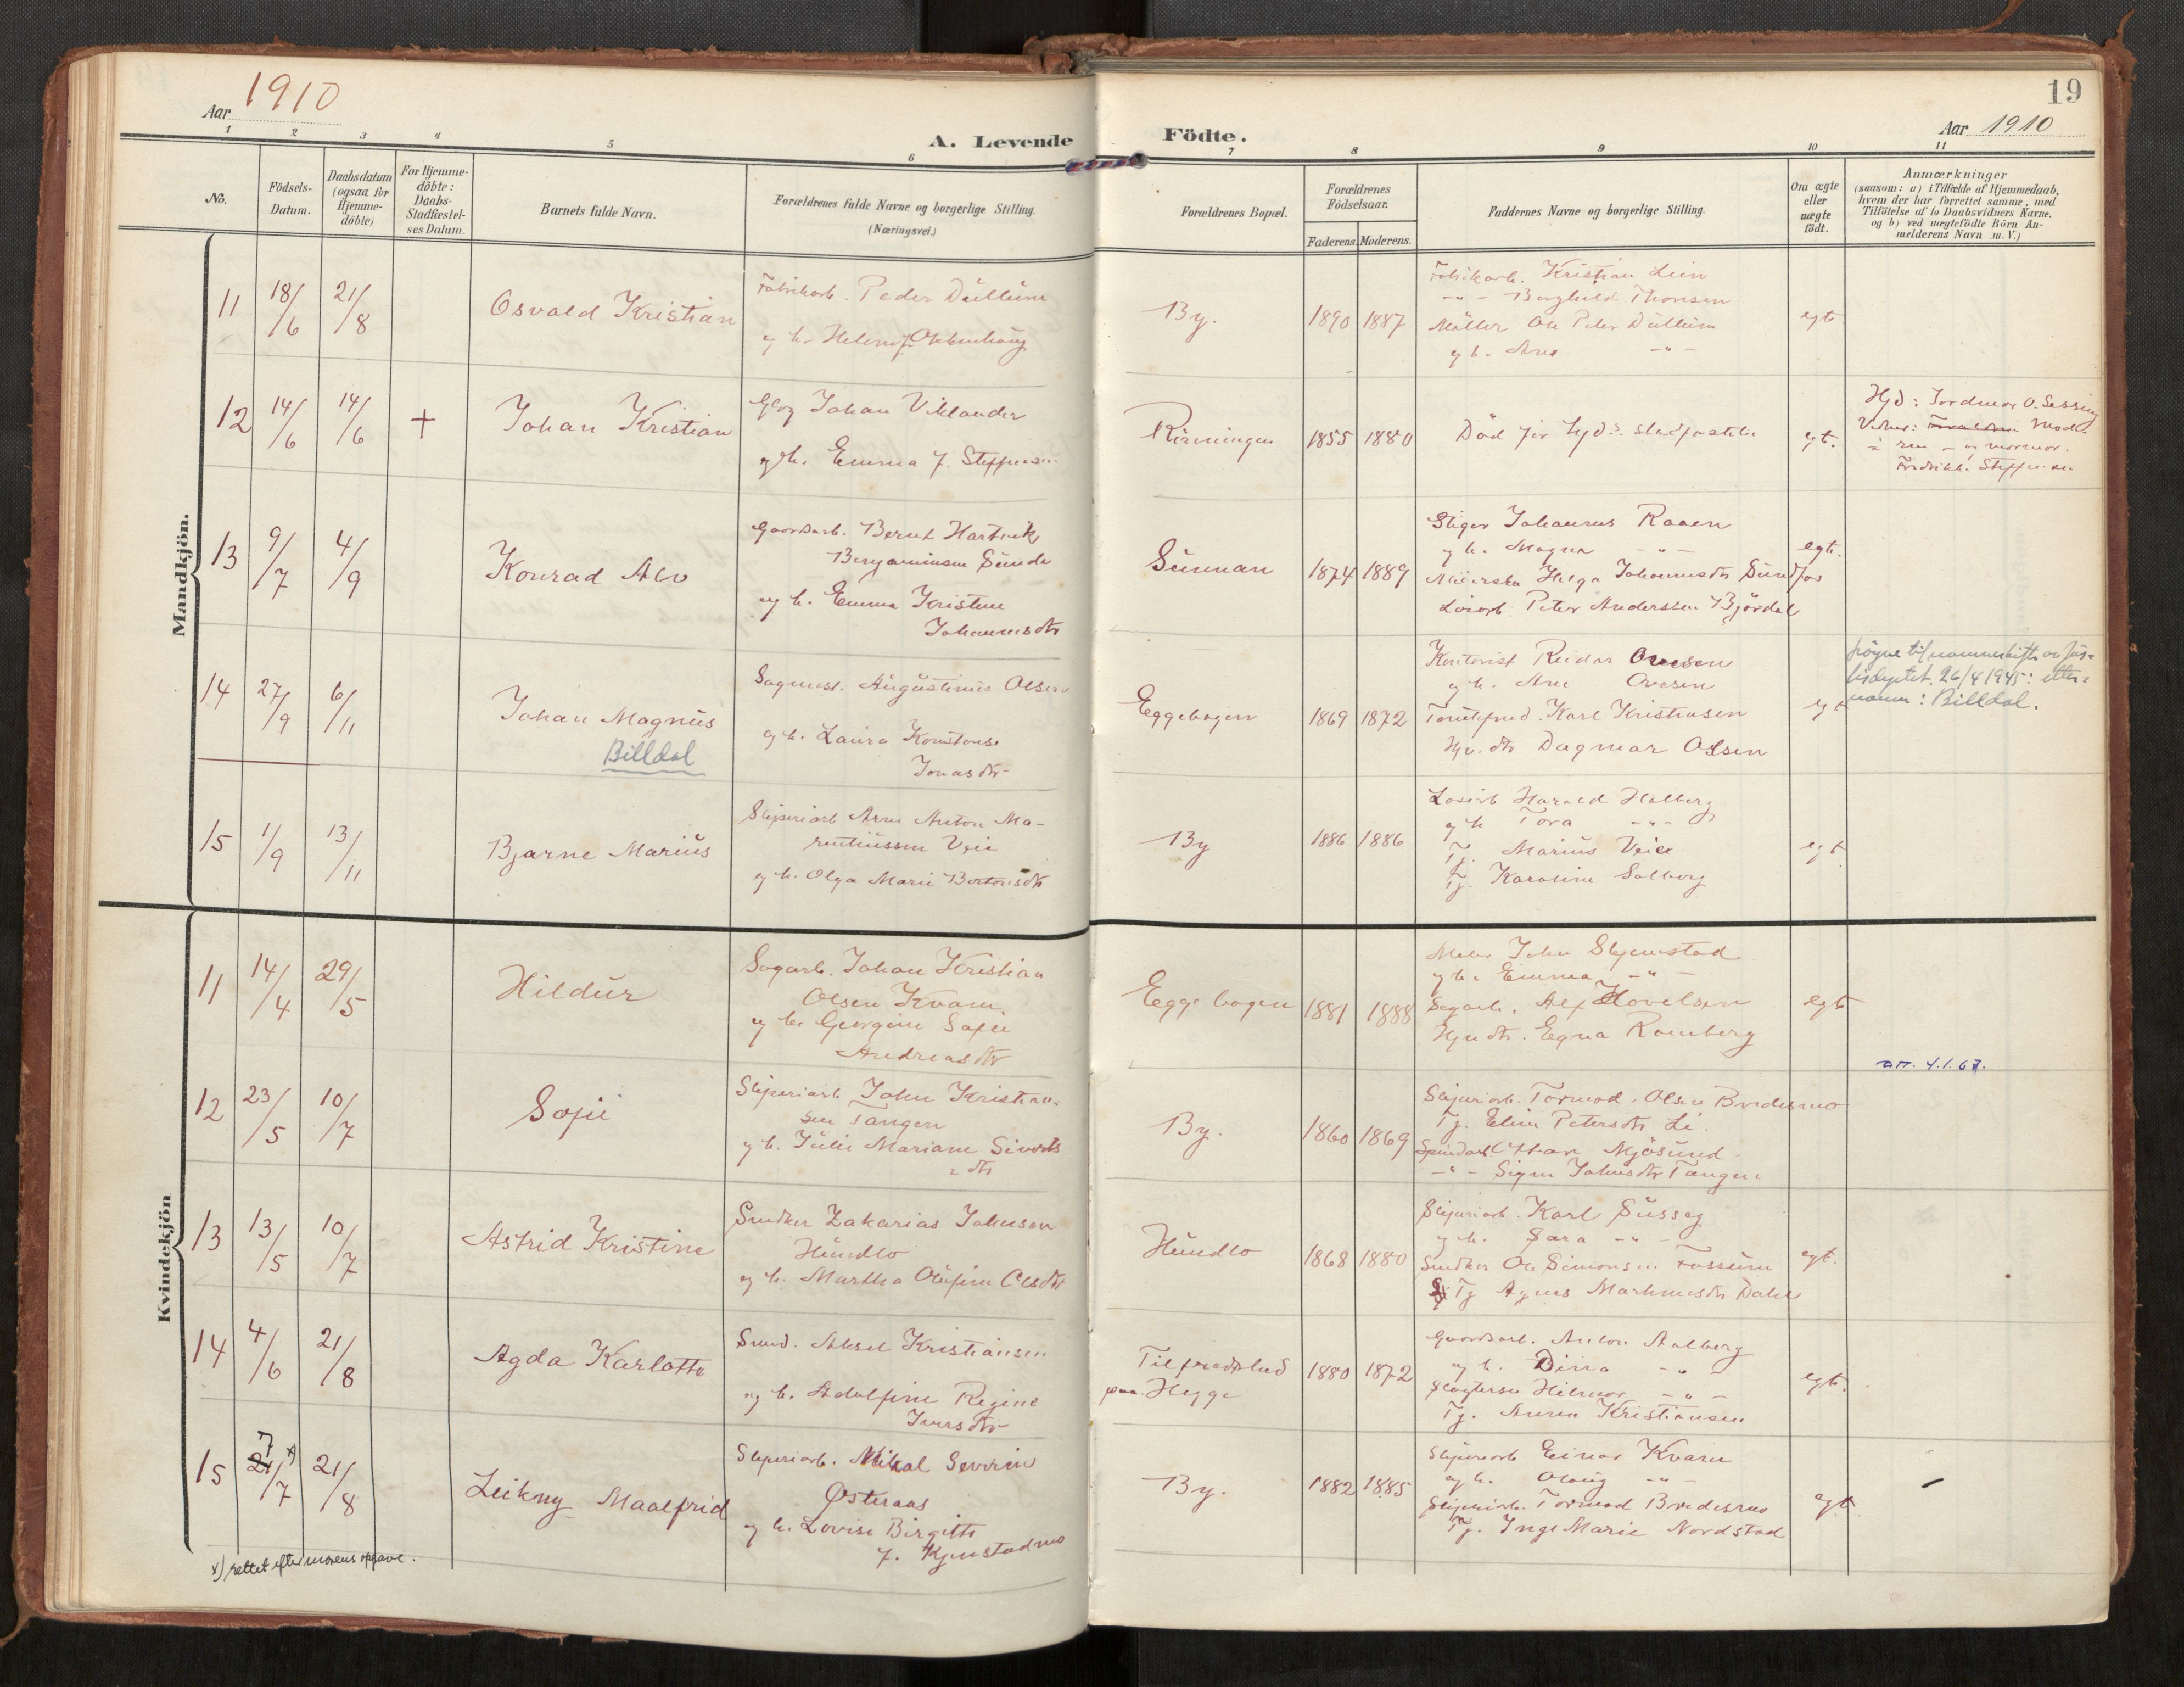 Aar 1910
A. Levende Födte.
19
Aar 1910
1 2 3 4 5 6 7 8 9 10 11
No.
Födsels-
Datum.
Daabsdatum
(ogsaa for
Hjemme-
döbte)
For Hjemme-
döbte:
Daabs-
Stadfæstel-
ses Datum.
Barnets fulde Navn.
Forældrenes fulde Navne og borgerlige Stilling.
(Næringsvei.)
Forældrenes Bopæl.
Forældrenes
Födselsaar.
Faderens. Moderens.
Faddernes Navne og borgerlige Stilling.
Om ægte
eller
uægte
födt.
Anmærkninger
(saasom: a) i Tilfælde af Hjemmedaab,
hvem der har forrettet samme, med
Tilföielse af to Daabsvidners Navne.
og b) ved uægtefödte Börn An-
melderens Navn m. V.)
Mandkjön.
11 18/6 21/8 Osvald Kristian
Fabrikarb. Peder Düllüm
og h.
By. 1890 1887
Fabrikarb. Kristian Lein
-"- Borghild Thorsen
Möller Ole Peter Düllüm
og h. Ane -"-
egt
12 14/6 14/6 + Johan Kristian
Johan Viklander
og h. Emma f. Steffensen
1855 1880
Död för hjd.s stadfæstelse
egt.
Hjd: Jordmor O. Sessing
Vidner: Foraldrene Mode-
ren og mormor.
Steffensen
13 9/7 4/9 Konrad Alv
Gaardarb. Bernt Hartvik
Benjaminsen Sünde
og h. Emma Kristine
Johannesdtr
Sünnan 1874 1889
Stiger Johannes Raaen
og h. Magna -"-
Helga Johannesdtr Sündfos
Lösarb. Peter Anderssen Björdal
egt.
14 27/9 6/11 Johan Magnüs
Billdal
Sagmest. Augüstinüs Olsen
og h. Laura Konstanse
Jonasdtr
Eggebogen 1869 1872
Kontorist Reidar Ovesen
og h. Ane Ovesen
Karl Kristiansen
Hjv. dtr Dagmar Olsen
egt
26/4 1945: etter-
namn: Billdal.
15 1/9 13/11 Bjarne Mariüs
Sliperiarb Arne Anton Ma-
rentiüssen Veie
og h. Olga Marie
By 1886 1886
Lösarb Harald Holberg
og h Tora -"-
Tj. Mariüs Veie
Tj. Karoline Salberg
egt
Kvindekjön
11 14/4 29/5 Hildür
Sagarb. Johan Kristian
Olsen Kvam.
og h. Georgine Sofie
Andreasdtr
Eggebogen 1881 1888
Maler John Skjemstad
og h. Emma -"-
Sagarb. Alf Hovelsen
Hjv dtr. Egna Romberg
egt
12 23/5 10/7 Sofie
Sliperiarb John Kristian-
sen Tangen
og h. Jülie Mariane Siverts
= dtr
By. 1860 1869
Sliperiarb. Tormod Olsen Bredesmo
Tj. Elin Petersdtr Li.
Othar Mjösünd
-"- Signe Johnsdtr Tangen
att. 4.1.67.
13 13/5 10/7 Astrid Kristine
Snedker Zakarias Johnsen
Hündlo
og h. Martha Olüfine Olsdtr
Hündlo 1868 1880
Sliperiarb. Karl Süsseg
og h. Sara -"-
Snedker Ole Simonsen Fossüm
Tj Agnes Dahl
egt.
14 4/6 21/8 Agda Karlotte
Smed. Aksel Kristiansen
og h. Adolfine Regine
Iversdtr
Tilfredshed
paa. Hegge
1880 1872
Gaardarb. Anton Aalberg
og h. Dina -"-
Hilmar -"-
Tj. Anna Kristiansen
egt.
15 21/7 7 x) 21/8 Leikny Maalfrid
Sliperiarb. Mikal Severin
Østeraas
og h. Lovise Birgitte
f. Kjenstadmo
By. 1882 1885
Sliperiarb Einar Kvam
og h. Olaüg -"-
Sliperiarb. Tormod Bredesmo
Tj. Inga Marie Nordstad
egt
x) rettet efter morens opgave.